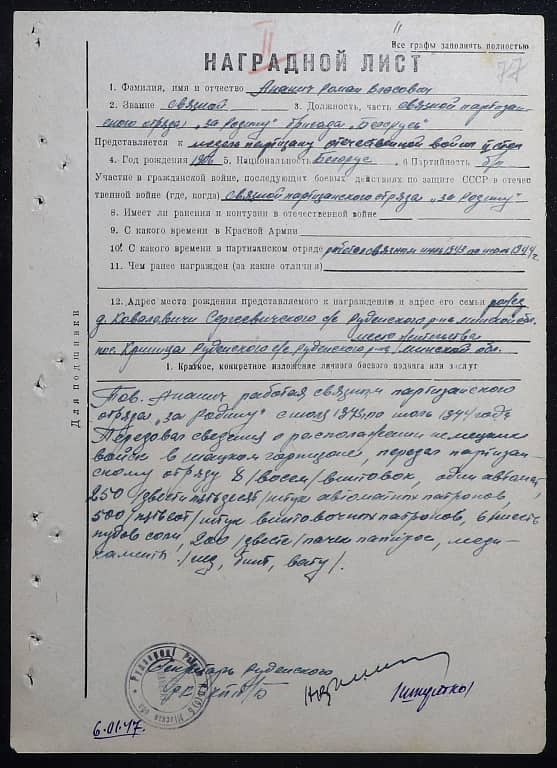 II
Все графы заполнять полностью
77
НАГРАДНОЙ ЛИСТ
1. Фамилия, имя и отчество Ананич Роман Власович
2. Звание связной 3. Должность, часть связной партизан-
ского отряда „за Родину" бригада „Беларусь"
Представляется к медали партизану отечественной войны II степ
4. Год рождения 1906 5. Национальность Белорус 6 Партийность б/п
Участие в гражданской войне, последующих боевых действиях по защите СССР в отечес
твенной войне (где, когда) связной партизанского отряда „за Родину"
8. Имеет ли ранения и контузии в отечественной войне
9. С какого времени в Красной Армии
10. С какого времени в партизанском отряде работал связным июль 1943 по июль 1944 г
11. Чем ранее награжден (за какие отличия)
12. Адрес места рождения представляемого к награждению и адрес его семьи
д. Коваловичи Сергеевичского с/с Руденского р-на Минской обл.
место жительства
пос. Криница Руденского с/с Руденского р-на Минской обл.
1. Краткое, конкретное изложение личного боевого подвига или заслуг
Тов. Ананич работая связным партизанского
отряда „за Родину" с июля 1943 по июль 1944 года
Передовал сведения о расположении немецких
войск в гарнизоне, передал партизан-
скому отряду 8 /восем/ винтовок, один автомат,
250 /двести пятьдесят/ штук автоматных патронов,
500 /пятьсот/ штук винтовочных патронов, 6 шесть
пудов соли, 200 /двести/ пачек папирос, меди-
каменты /иод, бинт, вату/.
Секретарь Руденского
РК КП/б/Б
6.01.47.
Для подшивки